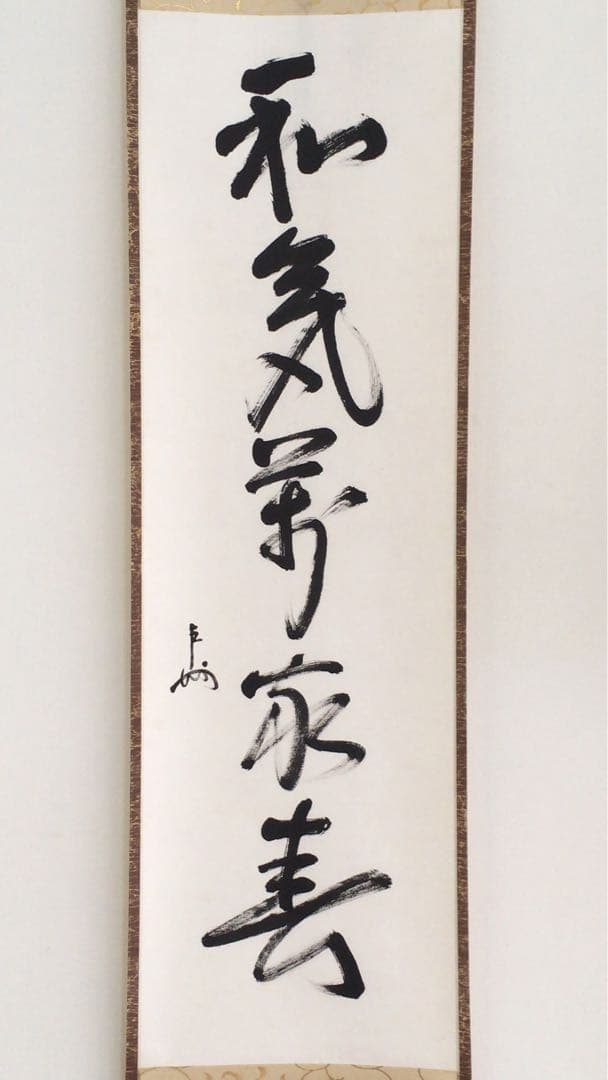 和気萬家春